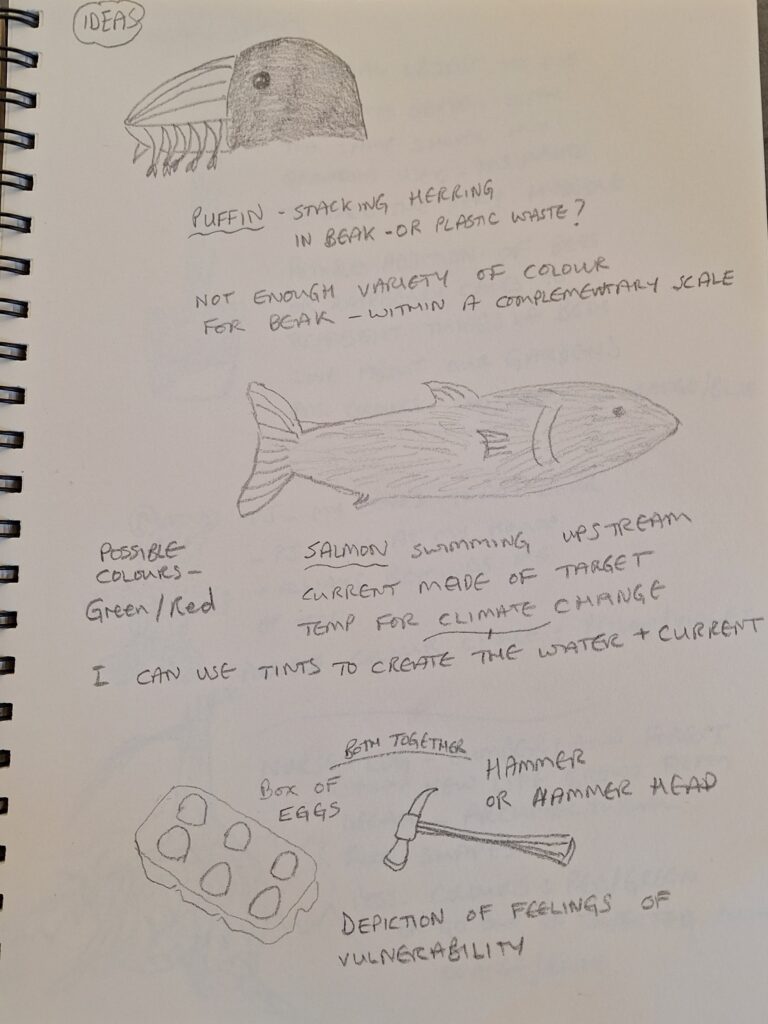 IDEAS
PUFFIN - STACKING HERRING
IN BEAK - OR PLASTIC WASTE?
NOT ENOUGH VARIETY OF COLOUR
FOR BEAK - WITHIN A COMPLEMENTARY SCALE
POSSIBLE
COLOURS -
Green/Red
SALMON SWIMMING UPSTREAM
CURRENT MADE OF TARGET
TEMP FOR CLIMATE CHANGE
I CAN USE TINTS TO CREATE THE WATER + CURRENT
BOTH TOGETHER
BOX OF
EGGS
HAMMER
OR HAMMER HEAD
DEPICTION OF FEELINGS OF
VULNERABILITY